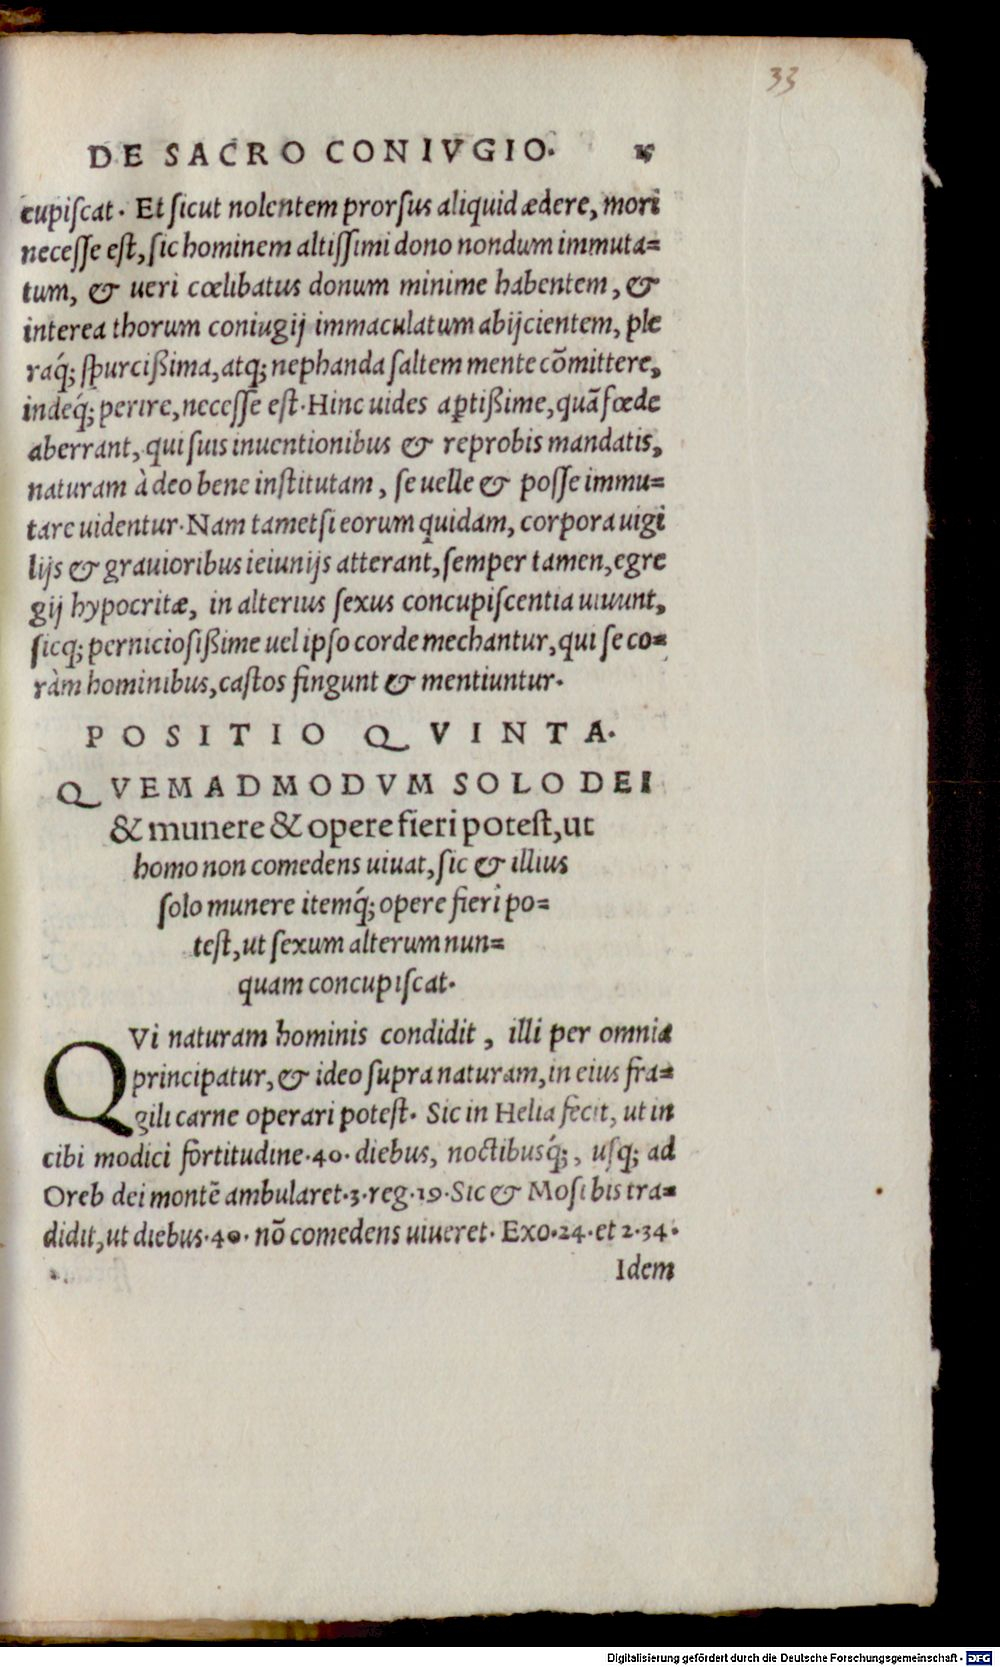 33
DE SACRO CONIVGIO. 15
cupiſcat. Et ſicut nolentem prorſus aliquid ædere, mori
neceſſe eſt, ſic hominem altiſſimi dono nondum immuta=
tum, & ueri cœlibatus donum minime habentem, &
interea thorum coniugij immaculatum abijcientem, ple
raq́; ſpurcißima, atq; nephanda ſaltem mente cõmittere,
indeq́; perire, neceſſe eſt. Hinc uides aptißime, quã fœde
aberrant, qui ſuis inuentionibus & reprobis mandatis,
naturam à deo bene inſtitutam, ſe uelle & poſſe immu=
tare uidentur. Nam tametſi eorum quidam, corpora uigi
lijs & grauioribus ieiunijs atterant, ſemper tamen, egre
gij hypocritæ, in alterius ſexus concupiſcentia uiuunt,
ſicq; pernicioſißime uel ipſo corde mechantur, qui ſe co=
ràm hominibus, caſtos fingunt & mentiuntur.
POSITIO QVINTA.
QVEMADMODVM SOLO DEI
& munere & opere fieri poteſt, ut
homo non comedens uiuat, ſic & illius
ſolo munere itemq́; opere fieri po=
teſt, ut ſexum alterum nun=
quam concupiſcat.
QVi naturam hominis condidit, illi per omnia
principatur, & ideo ſupra naturam, in eius fra=
gili carne operari poteſt. Sic in Helia fecit, ut in
cibi modici fortitudine .40. diebus, noctibusq́;, uſq; ad
Oreb dei montẽ ambularet .3. reg. 19. Sic & Moſi bis tra=
didit, ut diebus .40. nõ comedens uiueret. Exo. 24. et 2. 34.
Idem
Digitalisierung gefördert durch die Deutsche Forschungsgemeinschaft - DFG